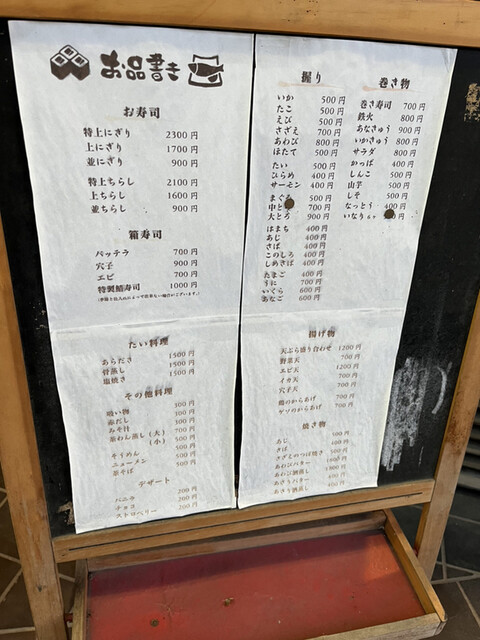 お品書き
お寿司
特上にぎり 2300円
上にぎり 1700円
並にぎり 900円
特上ちらし 2100円
上ちらし 1600円
並ちらし 900円
箱寿司
バッテラ 700円
穴子 900円
エビ 700円
特製鯖寿司 1000円
たい料理
あらだき 1500円
骨蒸し 1500円
塩焼き 1500円
その他料理
吸い物 300円
赤だし 300円
みそ汁 300円
茶わん蒸し (大) 700円
(小) 500円
そうめん 500円
ニューメン 500円
茶そば 500円
デザート
バニラ 200円
チョコ 200円
ストロベリー 200円
握り
いか 500円
たこ 500円
えび 500円
さざえ 700円
あわび 800円
ほたて 500円
たい 500円
ひらめ 400円
サーモン 400円
まぐろ 500円
中とろ 700円
大とろ 900円
はまち 400円
あじ 400円
さば 400円
このしろ 400円
しめさば 400円
たまご 400円
うに 700円
いくら 600円
あなご 600円
巻き物
巻き寿司 700円
鉄火 800円
あなきゅう 900円
いかきゅう 800円
サラダ 800円
かっぱ 400円
しんこ 500円
山芋 500円
しそ 500円
なっとう 400円
いなり 円
揚げ物
天ぷら盛り合わせ 1200円
野菜天 700円
エビ天 1200円
イカ天 700円
穴子天 700円
鶏のからあげ 700円
ゲソのからあげ 700円
焼き物
あじ 500円
さば 400円
サザエのつぼ焼き 500円
あわびバター
あわび酒蒸し
あさりバター 400円
あさり酒蒸し 400円